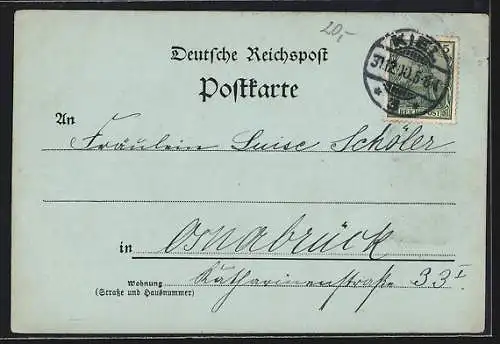 20,-
Deutsche Reichspost
Postkarte
KIEL
31.12.00.
5
REICHSPOST
An
Fräulein Luise Schöler
in Osnabrück
Wohnung
(Straße und Hausnummer)
Katharinenstraße 33 I.